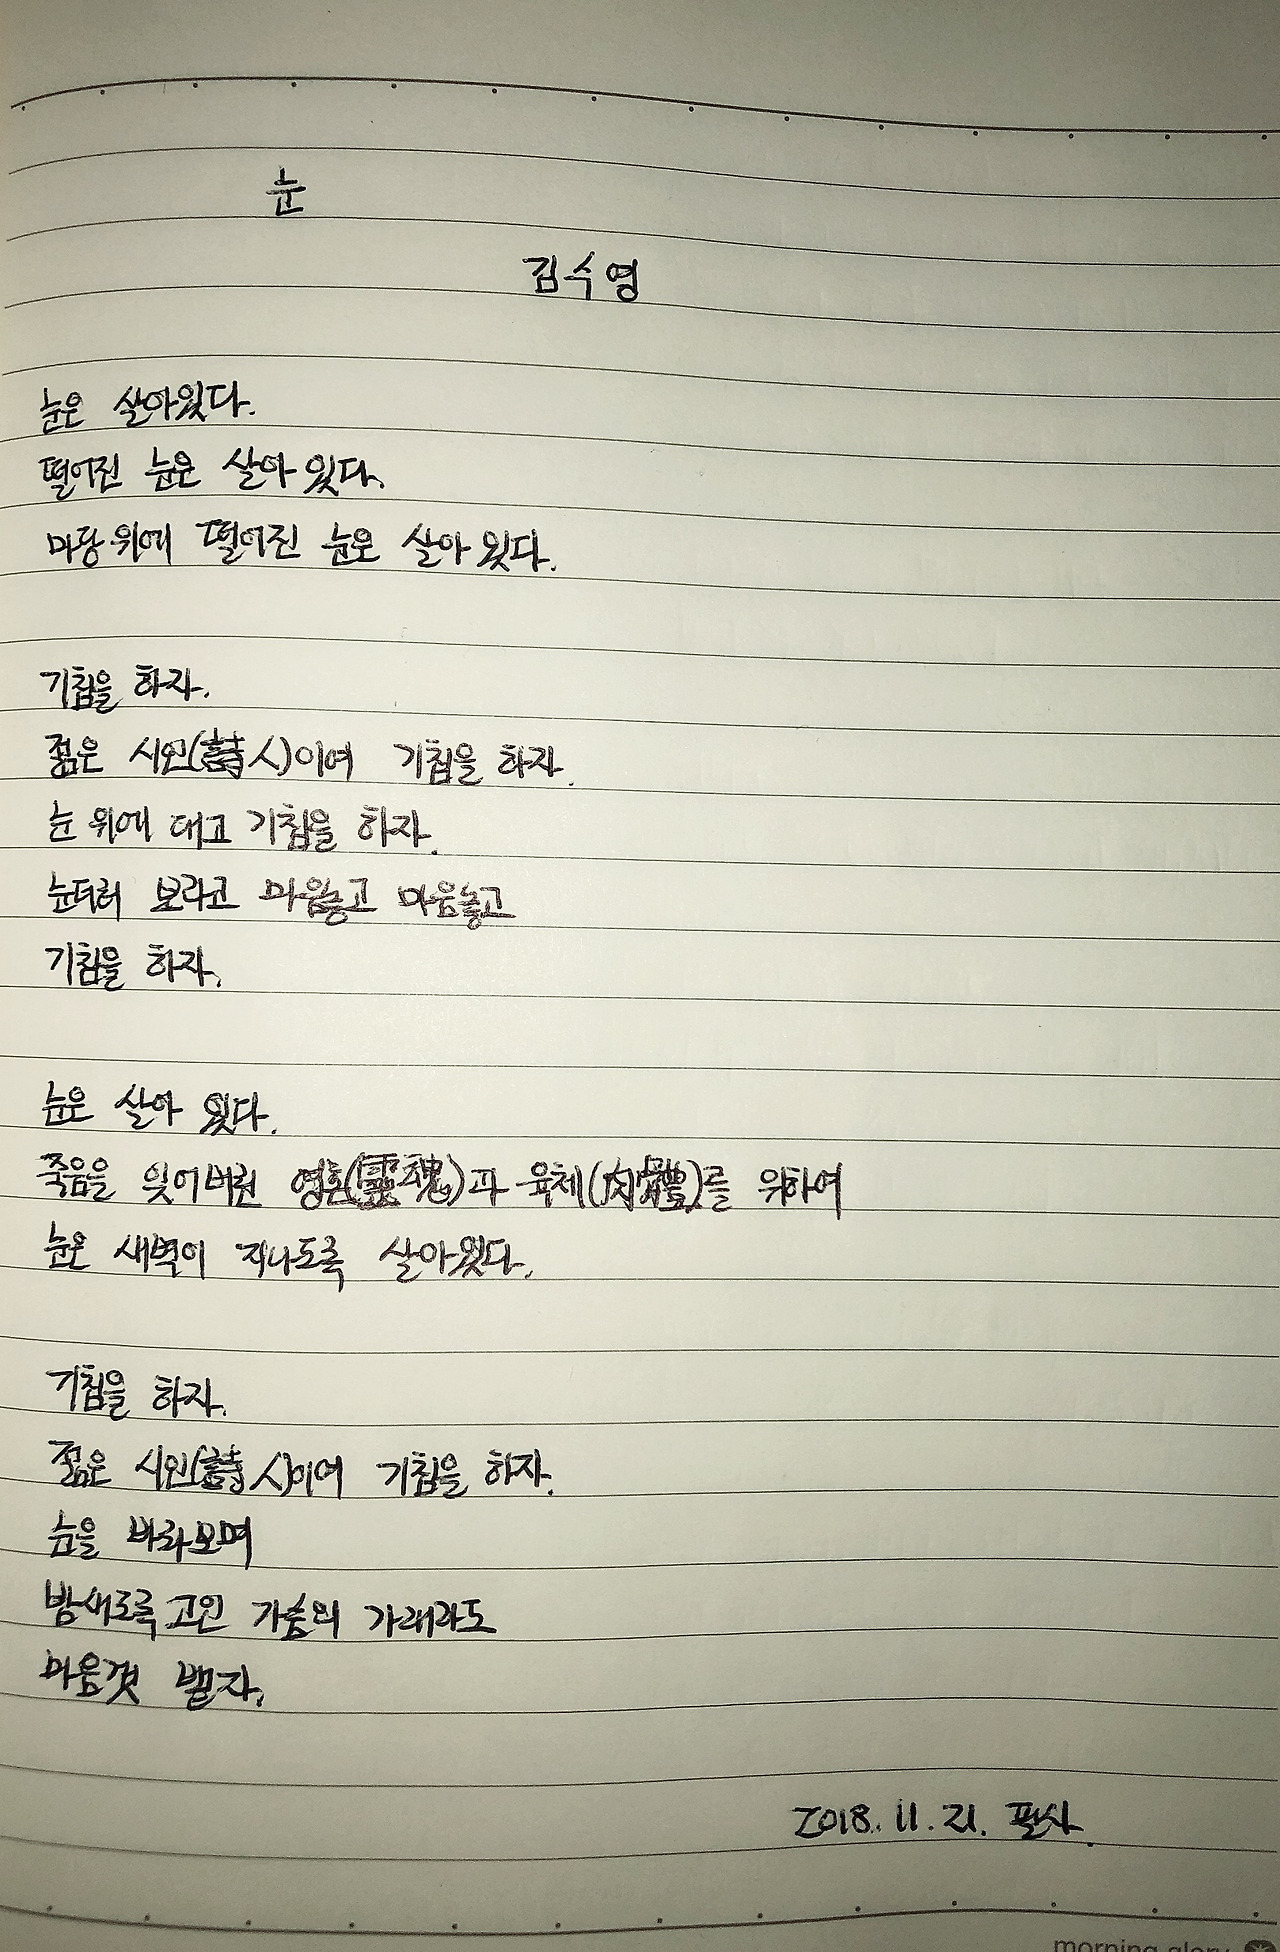 눈
김수영
눈은 살아있다.
떨어진 눈은 살아 있다.
마당 위에 떨어진 눈은 살아 있다.
기침을 하자.
젊은 시인(詩人)이여 기침을 하자.
눈 위에 대고 기침을 하자.
눈더러 보라고 마음놓고 마음놓고
기침을 하자.
눈은 살아 있다.
죽음을 잊어버린 영혼(靈魂)과 육체(肉體)를 위하여
눈은 새벽이 지나도록 살아있다.
기침을 하자.
젊은 시인(詩人)이여 기침을 하자.
눈을 바라보며
밤새도록 고인 가슴의 가래라도
마음껏 뱉자.
2018. 11. 21. 필사.
morning glory